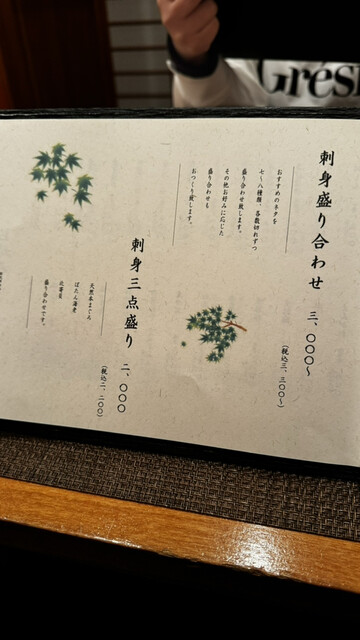 刺身盛り合わせ 三、〇〇〇~
(税込三、三〇〇~)
おすすめのネタを
七~八種類、各数切れずつ
盛り合わせ致します。
その他お好みに応じた
盛り合わせも
おつくり致します。
刺身三点盛り 二、〇〇〇
(税込二、二〇〇)
天然本まぐろ
ぼたん海老
比等豆
盛り合わせです。
Gres